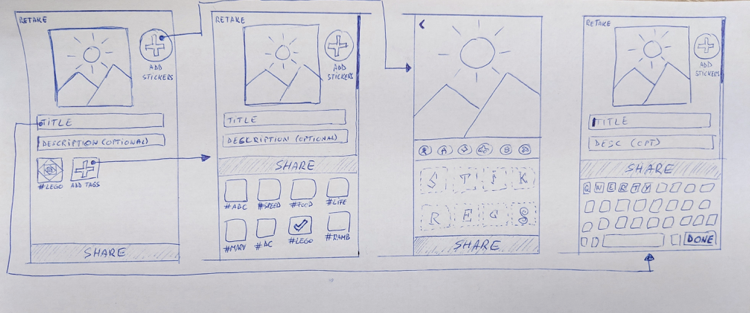 RETAKE
ADD
STICKERS
TITLE
DESCRIPTION (OPTIONAL)
#LEGO
ADD TAGS
SHARE
RETAKE
ADD
STICKERS
TITLE
DESCRIPTION (OPTIONAL)
SHARE
#ABC #SPEED #FOOD #LIFE
#MARY #LEGO
S T I K
R E
SHARE
RETAKE
ADD
STICKERS
TITLE
DESC (OPT)
SHARE
Q W E R T Y
DONE